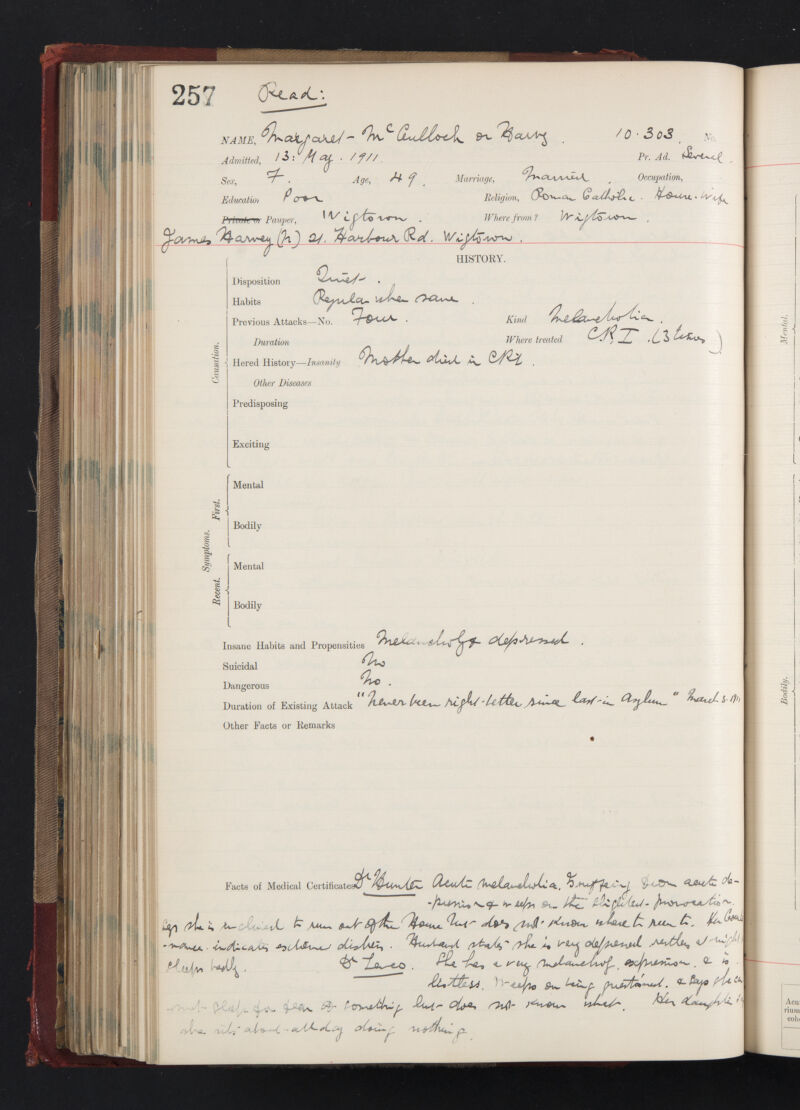 257 Read:
NAME, Margaret McCulloch or Harvey. 10.303. No.
Admitted, 13: May. 1911. Pr. Ad. Several.
Sex, F. Age, 49. Marriage, Married. Occupation,
Education Poor Religion, Roman Catholic. House-Wife
Private or Pauper, Wigtown. Where from? Wigtown.
James Harvey (h) 21. Harbour Rd. Wigtown.
HISTORY.
Disposition Quiet.
Habits Regular when sane.
Previous Attacks—No. Four. Kind Melancholia.
Duration Where treated C.R.I. (3 times)
Causation.
Hered History—Insanity Mother died in CRI.
Other Diseases
Predisposing
Exciting
Symptoms.
First.
Mental
Bodily
Recent.
Mental
Bodily
Insane Habits and Propensities Melancholy & depressed.
Suicidal No
Dangerous No.
Duration of Existing Attack "Never been right better since last in Asylum" March
Other Facts or Remarks
Facts of Medical Certificates Dr Hunter Acute melancholia. Suffering from acute de-
-pression & weeps on the slightest provocation.
says she is inclined to run out of the House but does not know where to run to. Her
indicates extreme distress. Husband states she is very depressed restless at night
sleeps badly. Dr She has a very melancholy expression. & is
listless. Weeps on being questioned. & says she
not sleep for fear of something but does not know what. Her daughter
she sits about all day doing nothing.
Mental.
Bodily.